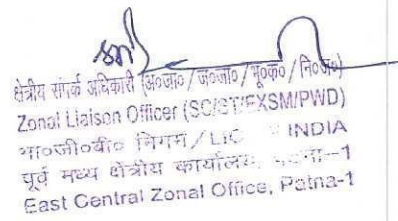 क्षेत्रीय संपर्क अधिकारी (अ०जा० / ज०जा० / भू०क० / नि०ज०)
Zonal Liaison Officer (SC/ST/EXSM/PWD)
भा०जी०बी० निगम / LIC INDIA
पूर्व मध्य क्षेत्रीय कार्यालय, पटना-1
East Central Zonal Office, Patna-1